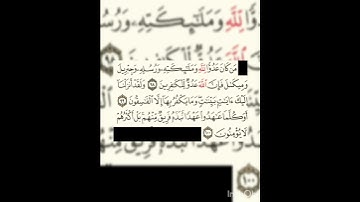 دُوًّا لِّلَّهِ وَمَلَـٰٓئِكَتِهِۦ وَرُسُ
مَن كَانَ عَدُوًّا لِّلَّهِ وَمَلَـٰٓئِكَتِهِۦ وَرُسُلِهِۦ وَجِبْرِيلَ
وَمِيكَىٰلَ فَإِنَّ ٱللَّهَ عَدُوٌّ لِّلْكَـٰفِرِينَ ٩٨ وَلَقَدْ أَنزَلْنَآ
إِلَيْكَ ءَايَـٰتٍۭ بَيِّنَـٰتٍ وَمَا يَكْفُرُ بِهَآ إِلَّا ٱلْفَـٰسِقُونَ ٩٩
أَوَكُلَّمَا عَـٰهَدُوا۟ عَهْدًا نَّبَذَهُۥ فَرِيقٌ مِّنْهُم بَلْ أَكْثَرُهُمْ
لَا يُؤْمِنُونَ ١٠٠
١٠٠